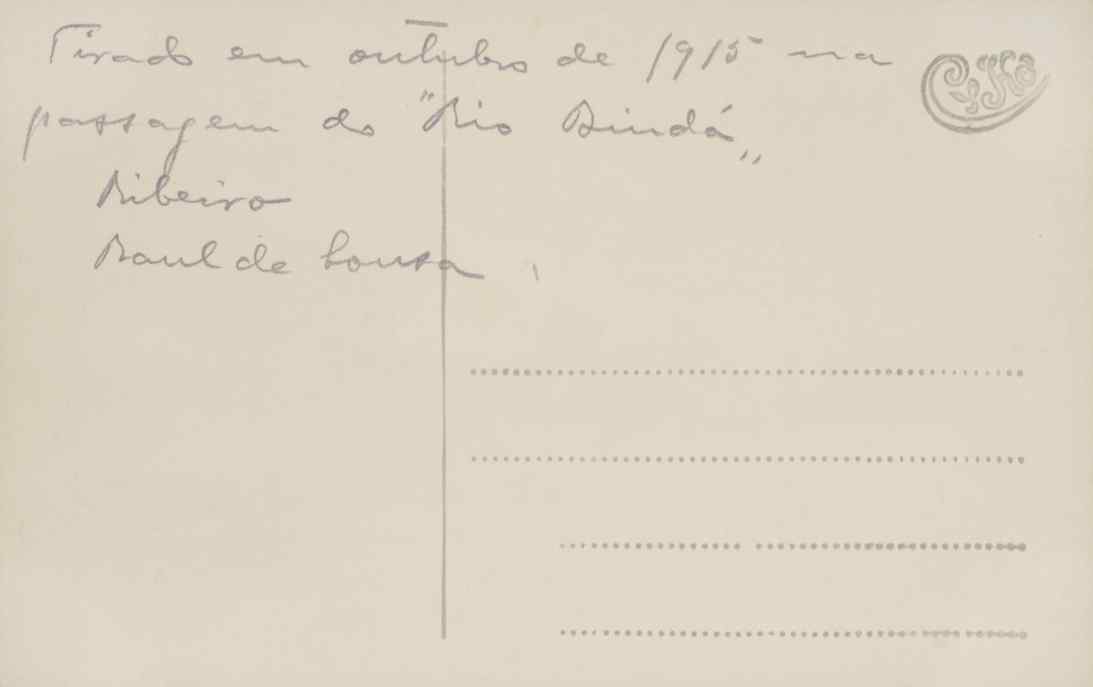 Tirado em outubro de 1915 na
passagem do "Rio Bindá„
Ribeiro
Raul de Sousa